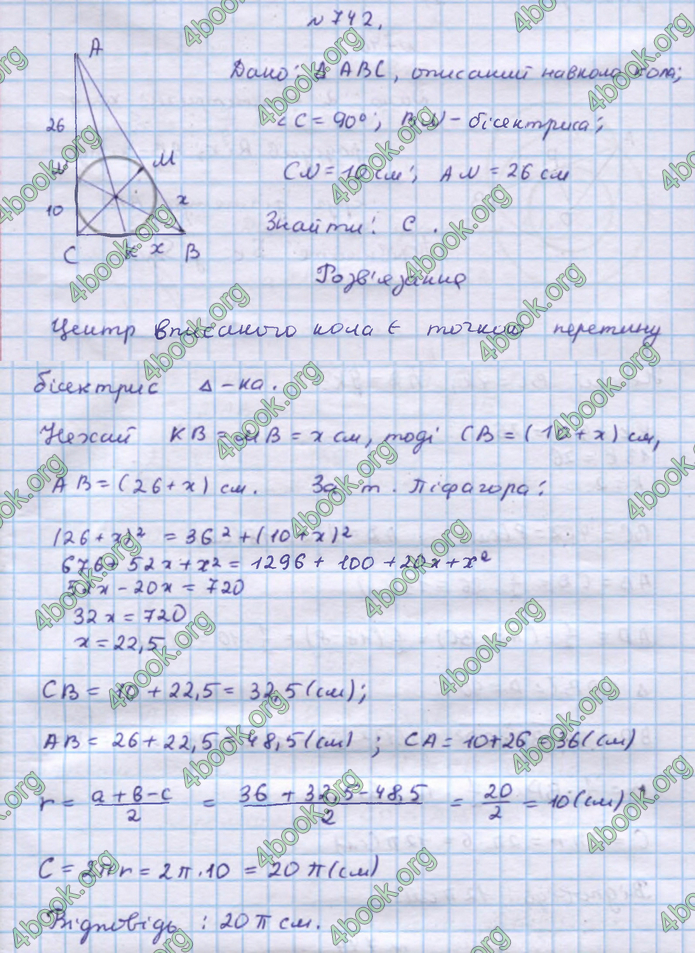 № 742.
A
Дано: Δ ABC, описаний навколо кола;
26
∠C = 90°; BN - бісектриса;
M
N
CN = 10 см; AN = 26 см
x
10
Знайти: C.
C K x B
Розв'язання
Центр вписаного кола є точкою перетину
бісектрис Δ-ка.
Нехай KB = MB = x см, тоді CB = (10+x) см,
AB = (26+x) см. За т. Піфагора:
(26+x)² = 36² + (10+x)²
676 + 52x + x² = 1296 + 100 + 20x + x²
52x - 20x = 720
32x = 720
x = 22,5
CB = 10 + 22,5 = 32,5 (см);
AB = 26 + 22,5 = 48,5 (см); CA = 10+26 = 36 (см)
r = (a+b-c)/2 = (36 + 32,5 - 48,5)/2 = 20/2 = 10 (см)
C = 2πr = 2π·10 = 20π (см)
Відповідь: 20π см.
4book.org